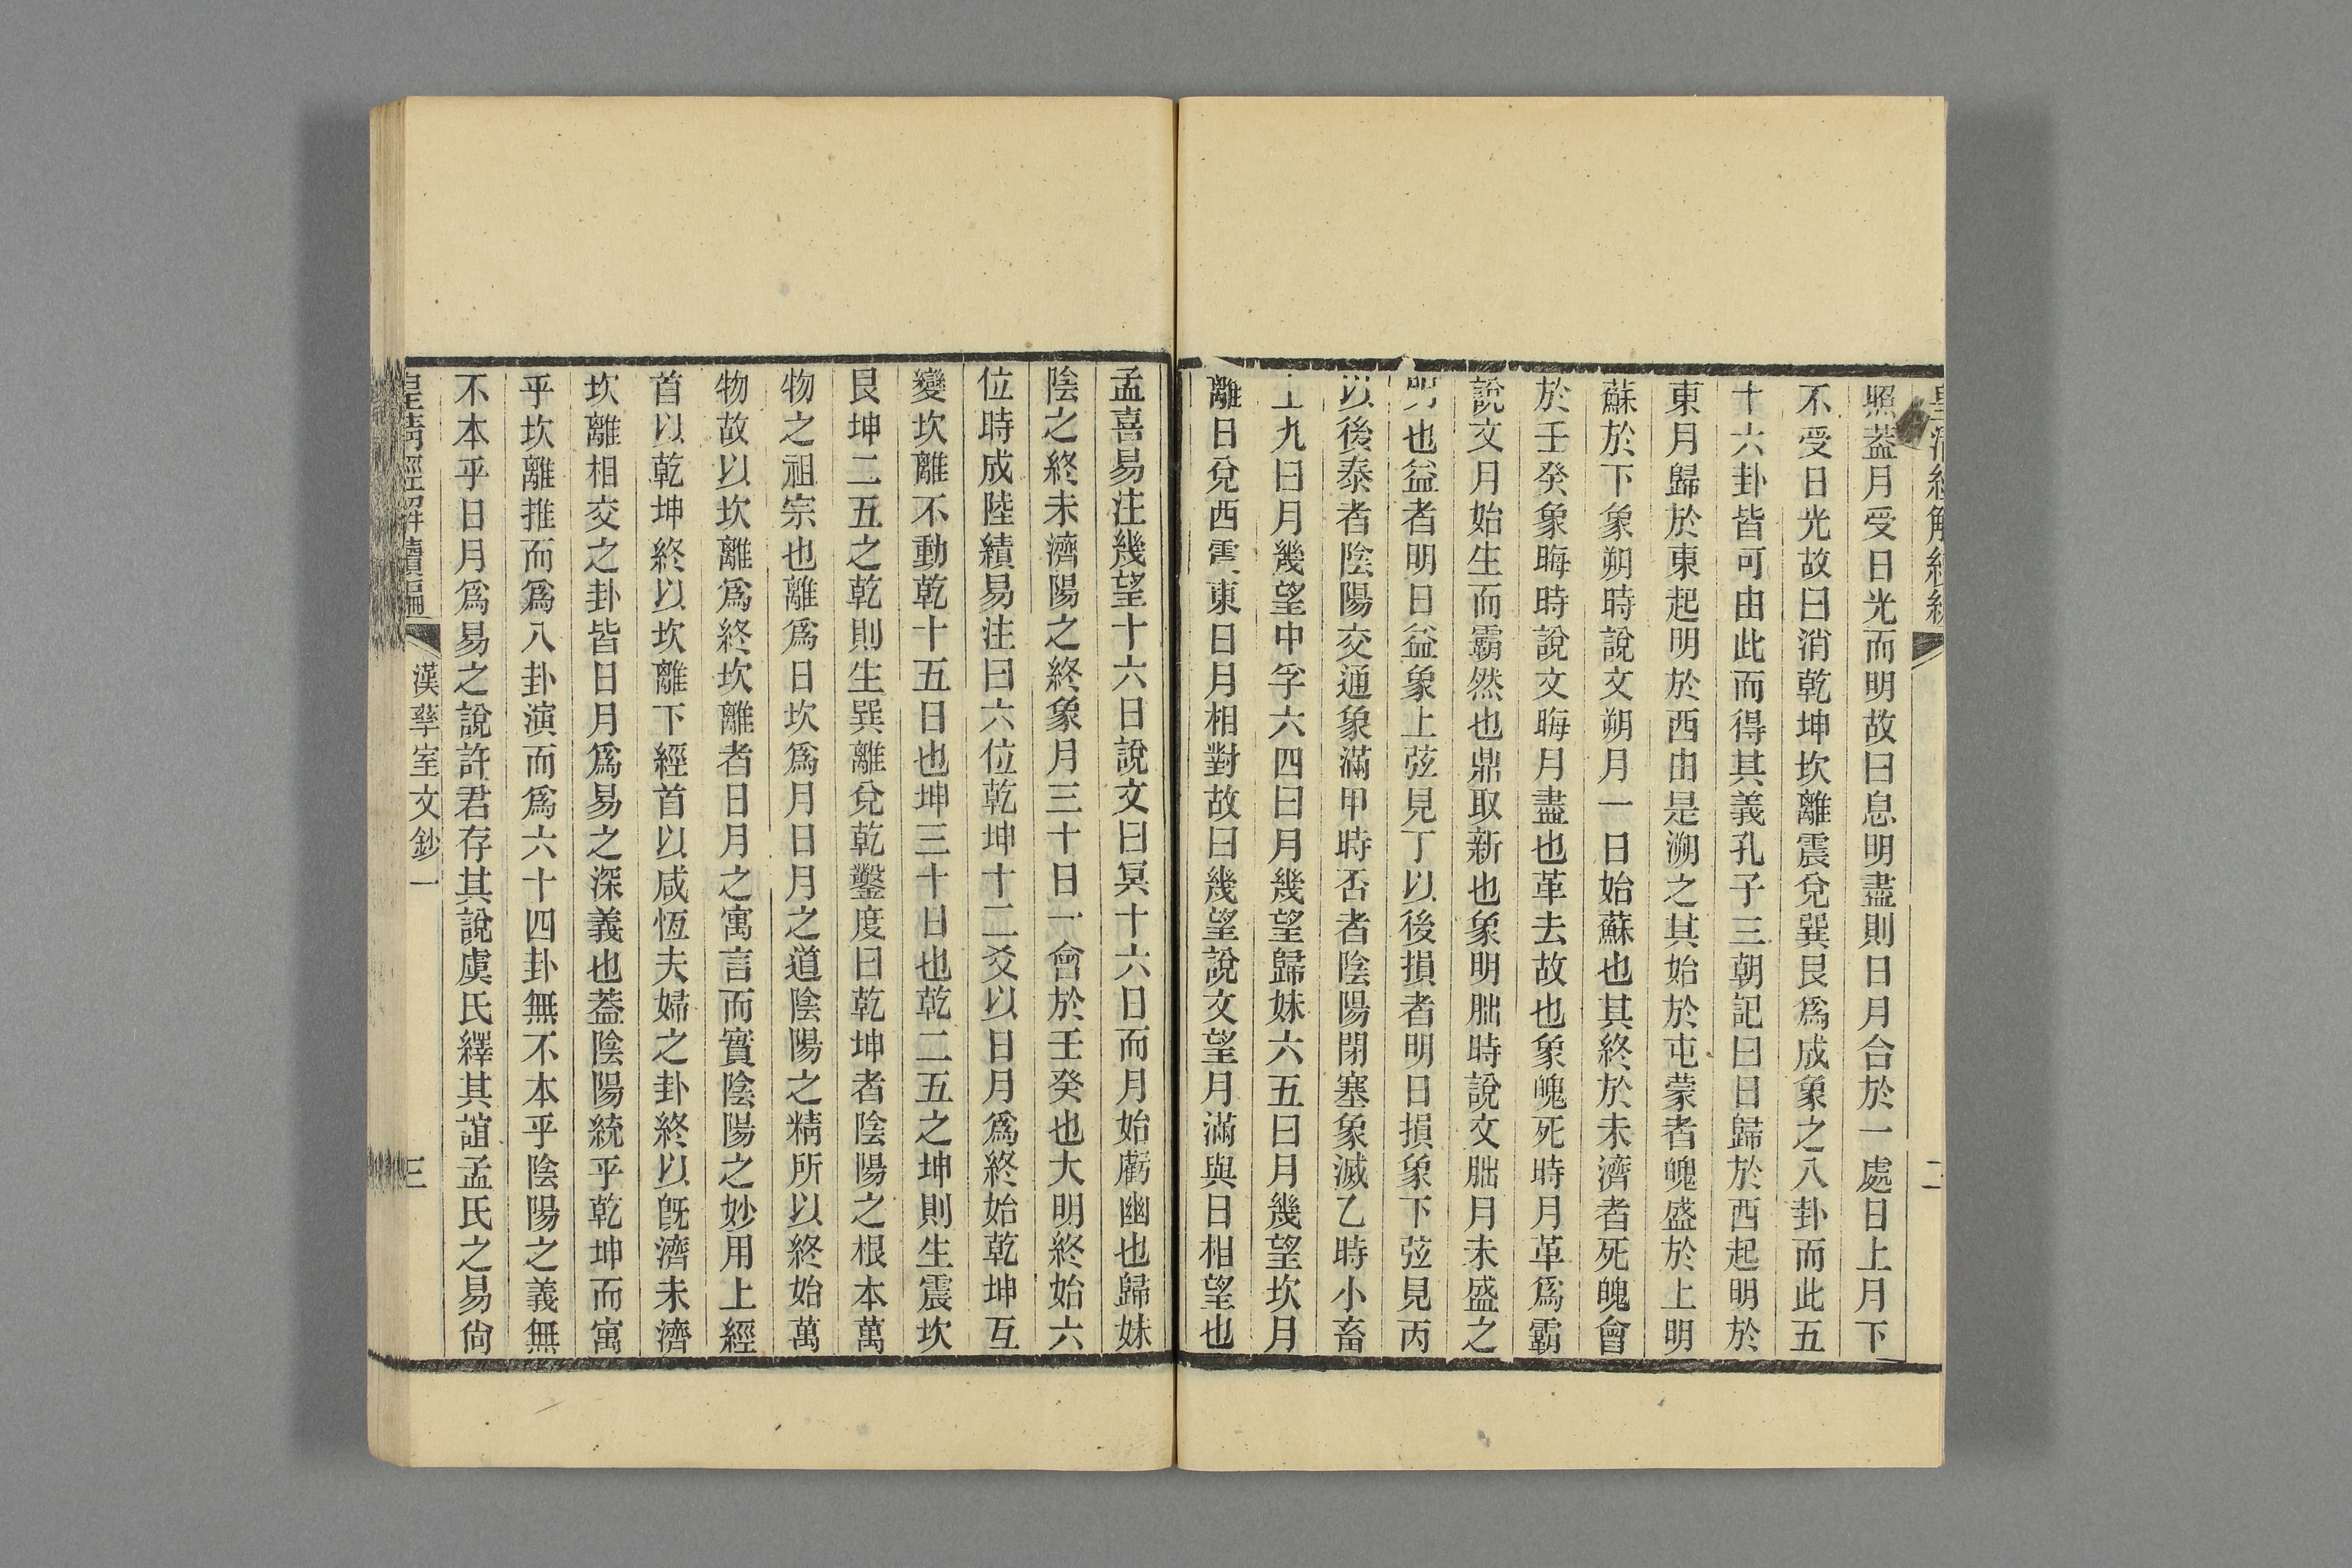 皇清經解續編
二
照葢月受日光而明故曰息明盡則日月合於一處日上月下
不受日光故曰消乾坤坎離震兌巽艮爲成象之八卦而此五
十六卦皆可由此而得其義孔子三朝記曰日歸於西起明於
東月歸於東起明於西由是溯之其始於屯蒙者魄盛於上明
蘇於下象朔時說文朔月一日始蘇也其終於未濟者死魄會
於壬癸象晦時說文晦月盡也革去故也象魄死時月革爲霸
說文月始生而霸然也鼎取新也象明朏時說文朏月未盛之
明也益者明日益象上弦見丁以後損者明日損象下弦見丙
以後泰者陰陽交通象滿甲時否者陰陽閉塞象滅乙時小畜
上九曰月幾望中孚六四曰月幾望歸妹六五曰月幾望坎月
離日兌西震東日月相對故曰幾望說文望月滿與日相望也
孟喜易注幾望十六日說文曰冥十六日而月始虧幽也歸妹
陰之終未濟陽之終象月三十日一會於壬癸也大明終始六
位時成陸績易注曰六位乾坤十二爻以日月爲終始乾坤互
變坎離不動乾十五日也坤三十日也乾二五之坤則生震坎
艮坤二五之乾則生巽離兌乾鑿度曰乾坤者陰陽之根本萬
物之祖宗也離爲日坎爲月日月之道陰陽之精所以終始萬
物故以坎離爲終坎離者日月之寓言而實陰陽之妙用上經
首以乾坤終以坎離下經首以咸恆夫婦之卦終以旣濟未濟
坎離相交之卦皆日月爲易之深義也葢陰陽統乎乾坤而寓
乎坎離推而爲八卦演而爲六十四卦無不本乎陰陽之義無
不本乎日月爲易之說許君存其說虞氏繹其誼孟氏之易尙
皇清經解續編
漢孳室文鈔一
三